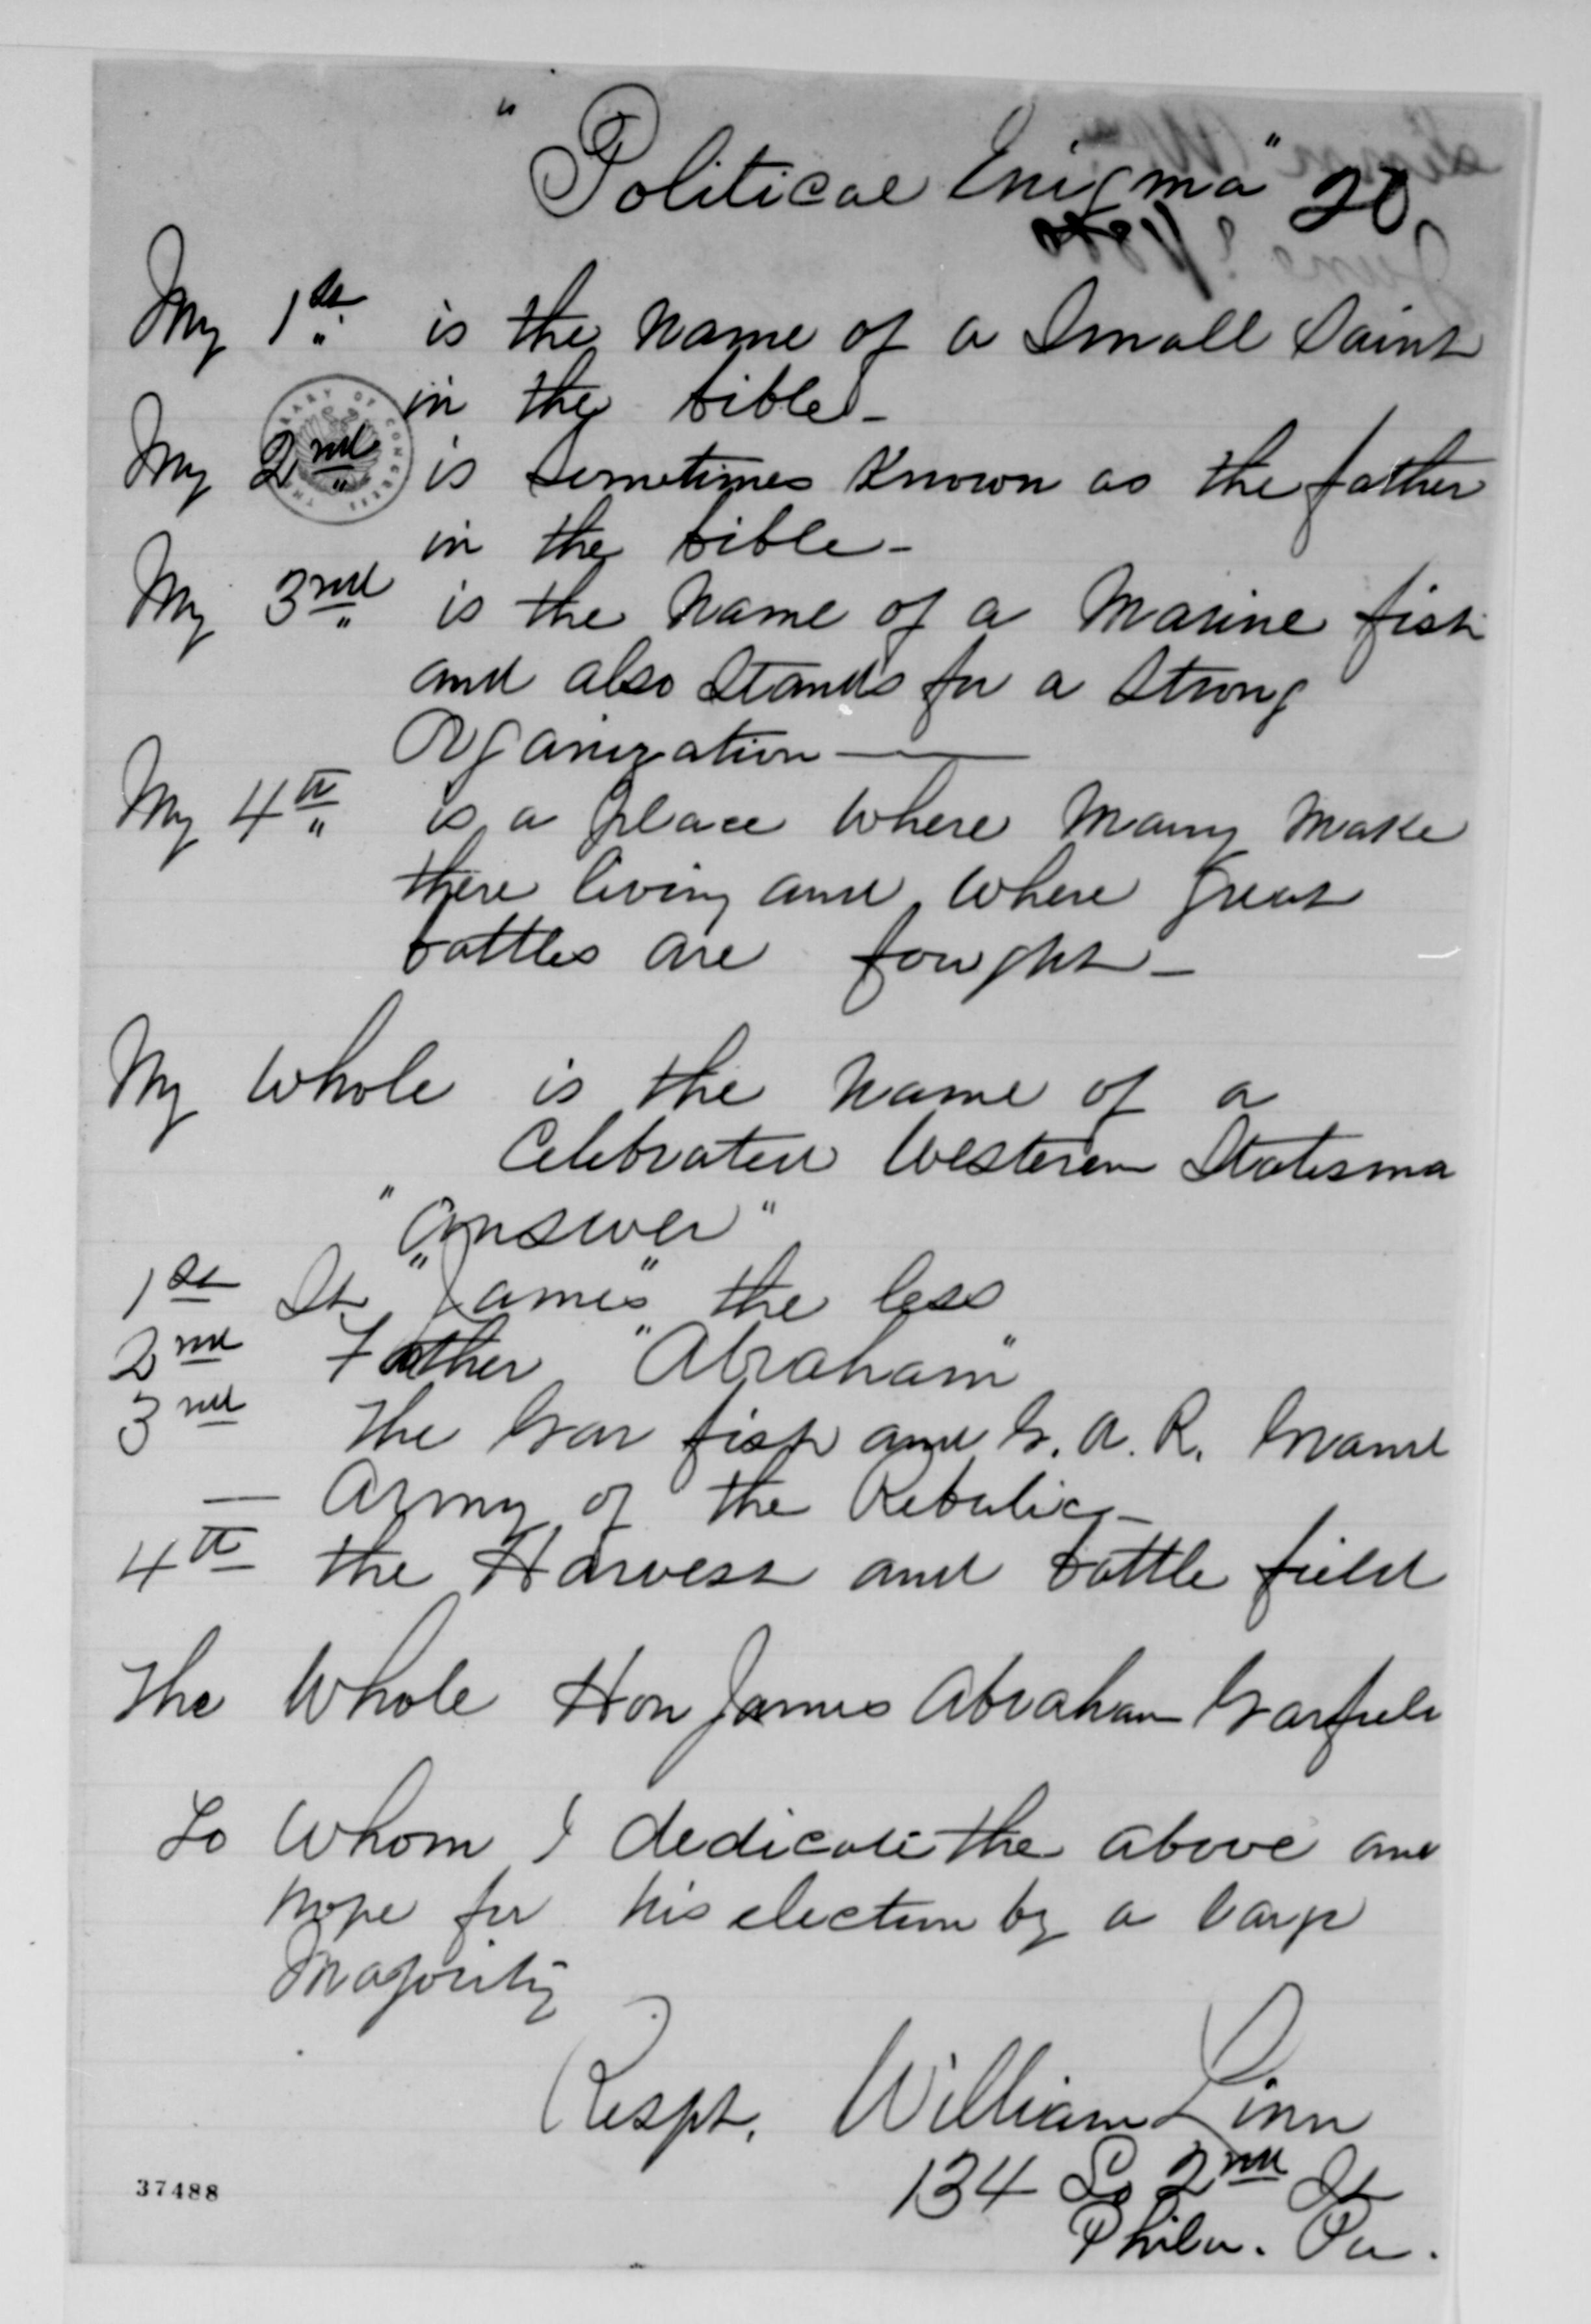 "Political Enigma" 20
My 1st is the name of a Small Saint
in the bible -
My 2nd is sometimes Known as the father
in the bible -
My 3rd is the name of a Marine fish
and also Stands for a Strong
Organization —
My 4th is a place where Many Make
there living and where great
battles are fought -
My Whole is the name of a
Celebrated Western Statesma
"Answer"
1st St "James" the less
2nd Father "Abraham"
3rd The Gar fish and G. A. R. Grand
— Army of the Rebulic -
4th the Harvest and battle field
The Whole Hon James Abraham Garfield
To Whom I dedicate the above and
hope for his election by a large
Majority
Respt. William Linn
134 So 2nd St
Phila. Pa.
37488
THE LIBRARY OF CONGRESS